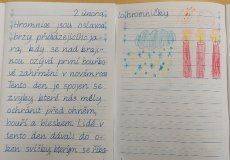 2. února
Hromnice jsou oslava
brzy přicházejícího ja-
ra, kdy se nad kraj-
nou ozývá první bouřko
vé zahřmění v novém roce
Tento den je spojen se
zvyky, které nás měly
ochránit před ohněm,
bouří a bleskem. Lidé v
tento den dávali do o-
ken svíčky, kterým se říka
hromničky